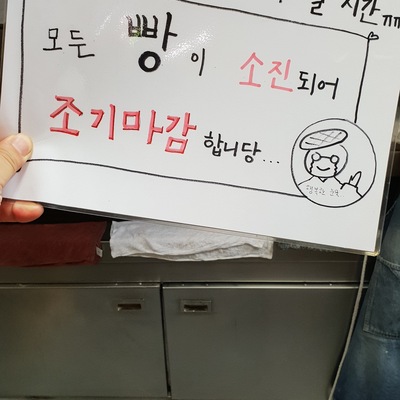 시간ㅠㅠ
모든 빵이 소진되어
조기마감 합니당...